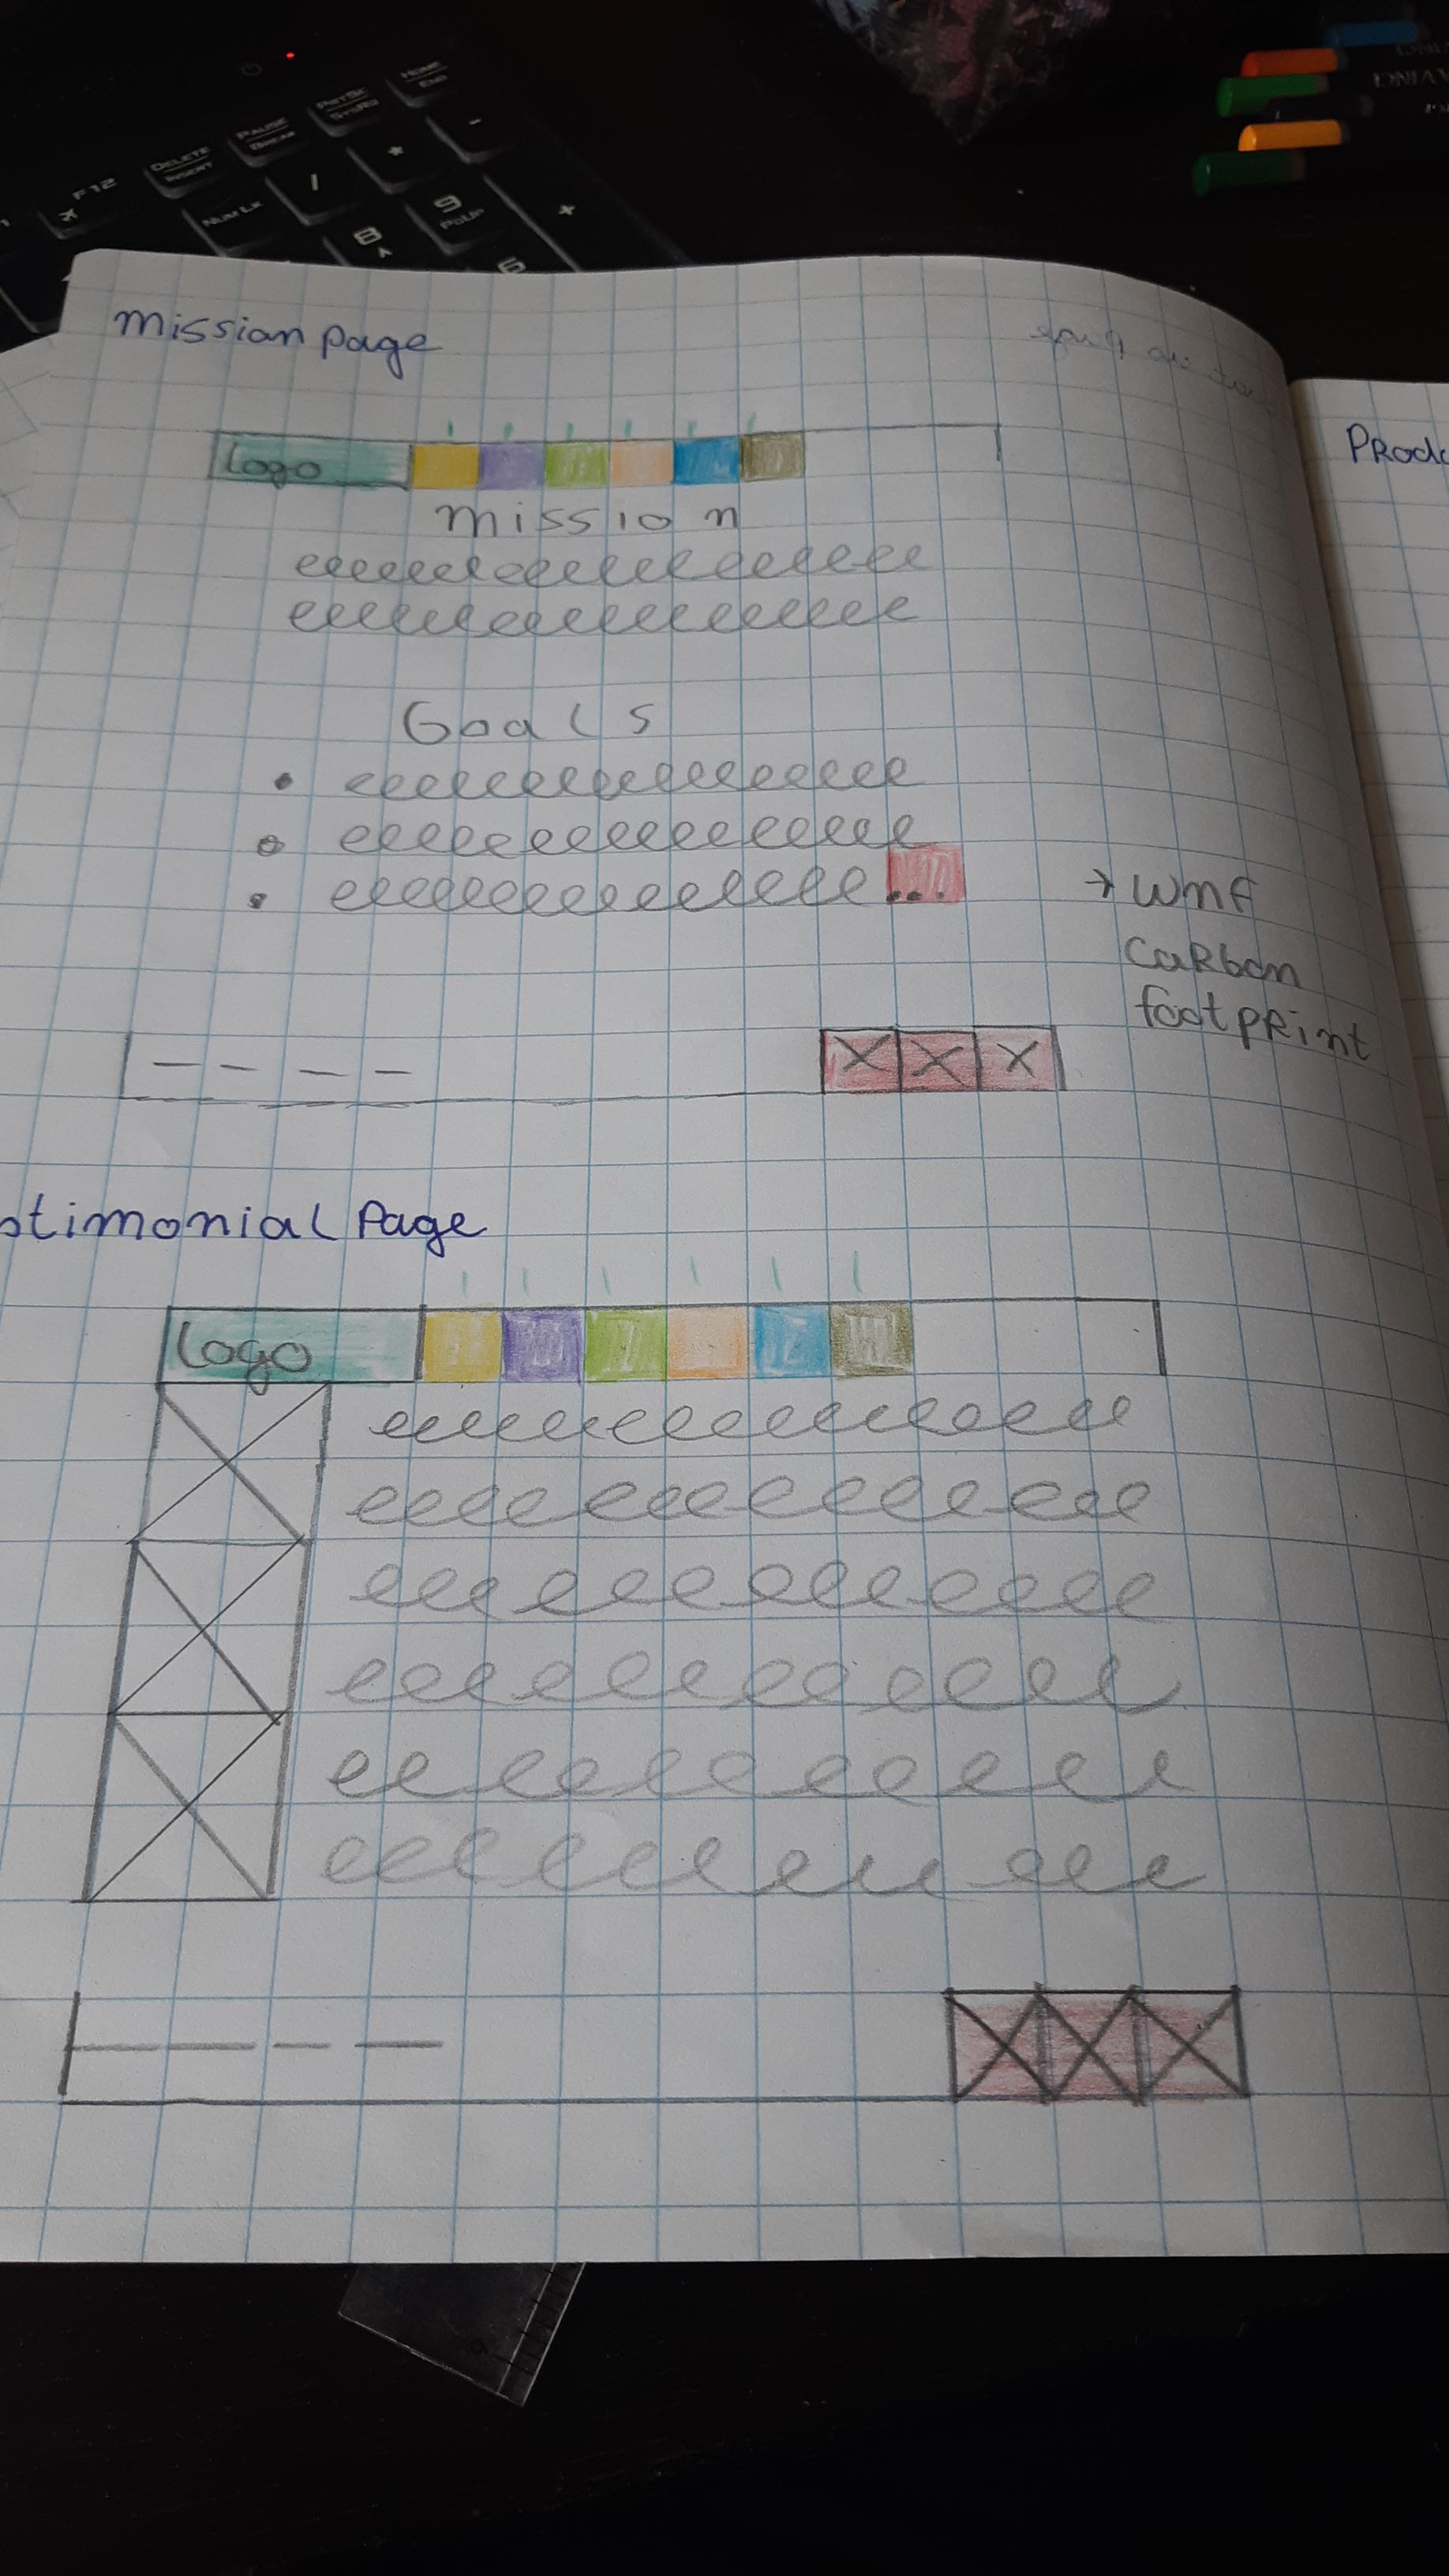 F12
DELETE
INSERT
PAUSE
BREAK
PRTSC
SYSRQ
HOME
END
NUM LK
/
*
-
8
9
PGUP
+
6
missian page
Logo
mission
Goals
...
→ wnf
carbon
footprint
stimonial Page
Logo
PRodu